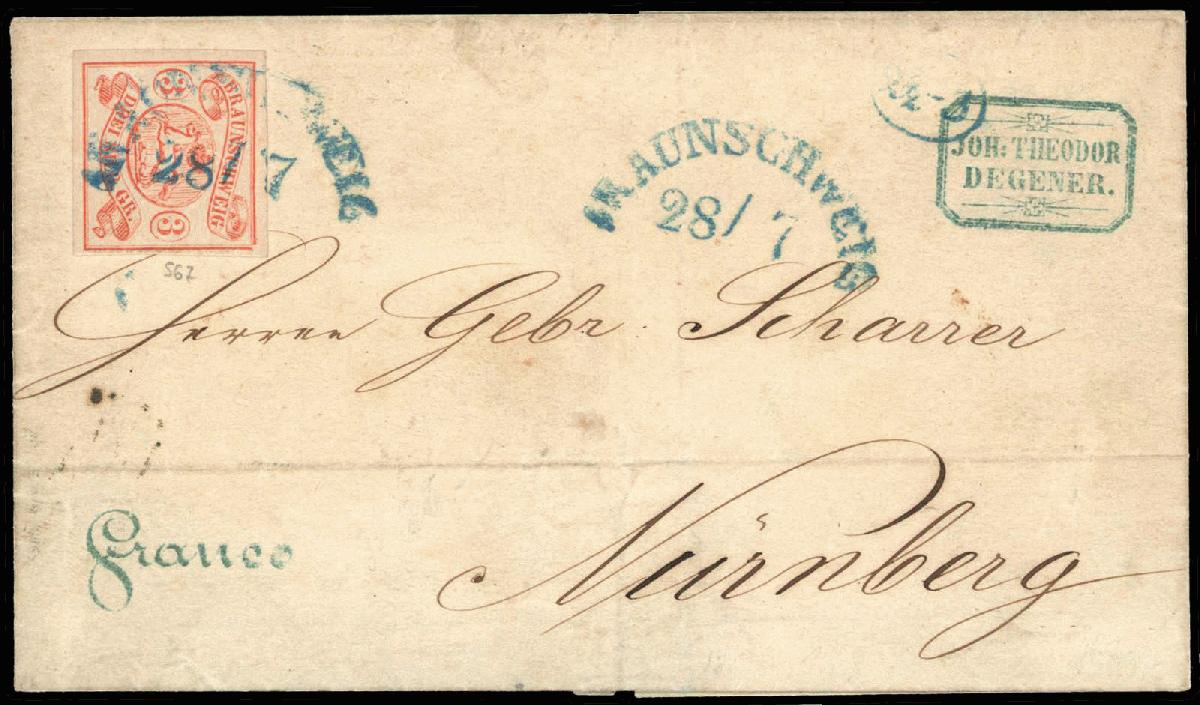 BRAUNSCHWEIG.
3
3
GR.
28 7
BRAUNSCHWEIG
28/7
JOH: THEODOR
DEGENER.
567
Herren Gebr. Scharrer
Nürnberg
Franco